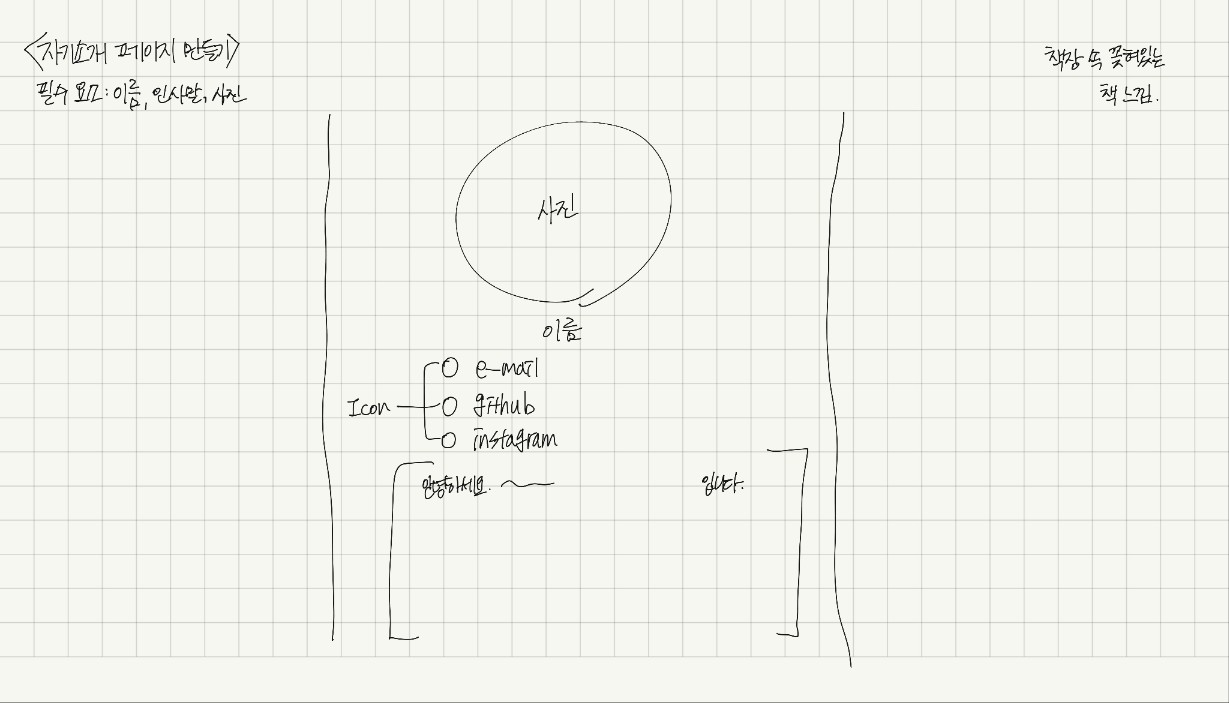 <자기소개 페이지 만들기>
필수 요소: 이름, 인사말, 사진
책장 속 꽂혀있는
책 느낌.
사진
이름
e-mail
Icon
github
instagram
안녕하세요. 입니다.